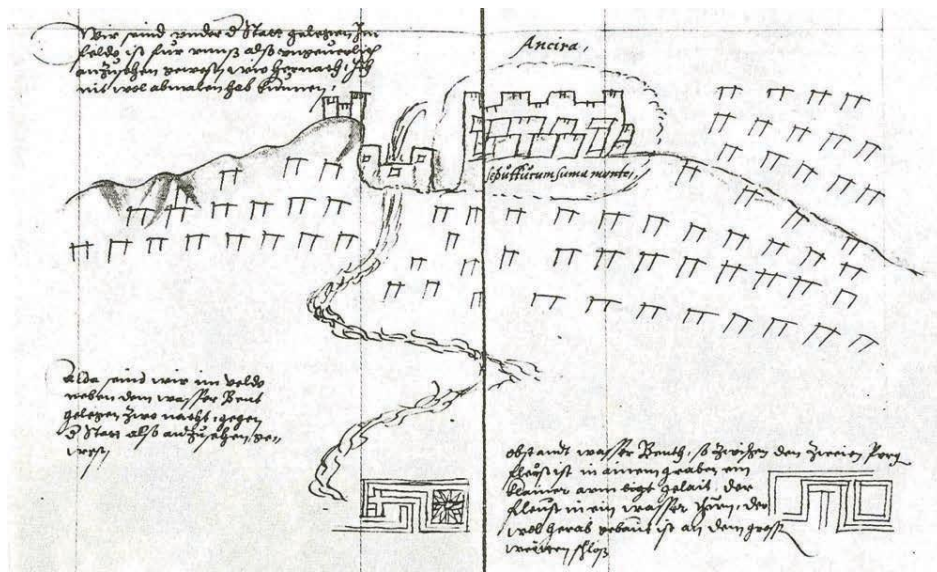 Wir sind vnder d Statt gelegen Im
feldt ist für vnnß alß vngeuerlich
anzusehen gewest, wie hernach, Ich
nit wol abmalen hab künnen,
Ancira,
sepulturum suma monte,
Alda seind wir im veldt
neben dem wasser Bent
gelegen zwo nacht, gegen
d Statt alß anzusehen ge-
west,
obstandt wasser Benth, so zwischen den zweien Perg
fleust ist in ainem graben ein
klainer arm bigt gelait, der
fleust in ein wasser thurn, der
wol herab gebaut ist an dem gross
weitten schloß